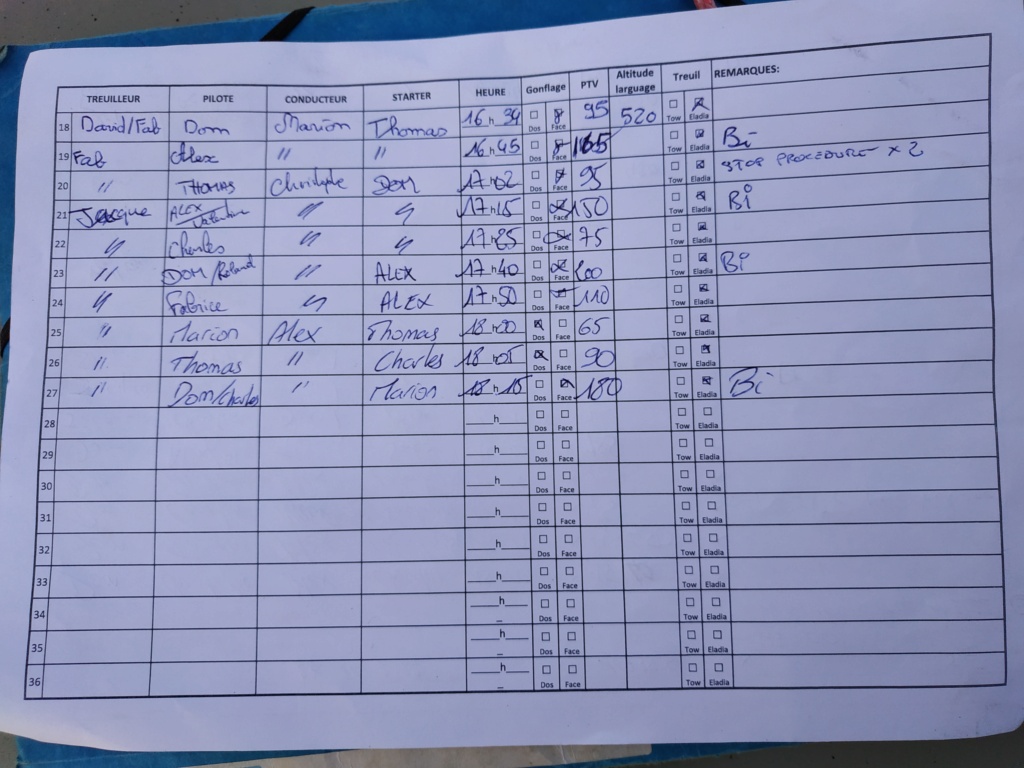 TREUILLEUR PILOTE CONDUCTEUR STARTER HEURE Gonflage PTV Altitude larguage Treuil REMARQUES:
18 David/Fab Dom Marion Thomas 16 h 34 Dos Face 95 520 Tow Eladia
19 Fab Alex // // 16 h 45 Dos Face 165 Tow Eladia Bi
20 // THOMAS Christophe DOM 17 h 02 Dos Face 95 Tow Eladia STOP PROCEDURE x 2
21 Jacque ALEX // // 17 h 15 Dos Face 150 Tow Eladia Bi
22 // Charles // // 17 h 25 Dos Face 75 Tow Eladia
23 // DOM/Roland // ALEX 17 h 40 Dos Face 200 Tow Eladia Bi
24 // Fabrice // ALEX 17 h 50 Dos Face 110 Tow Eladia
25 // Marion Alex Thomas 18 h 00 Dos Face 65 Tow Eladia
26 // Thomas // Charles 18 h 05 Dos Face 90 Tow Eladia
27 // Dom/Charles // Marion 18 h 15 Dos Face 180 Tow Eladia Bi
28 ____h____ Dos Face Tow Eladia
29 ____h____ Dos Face Tow Eladia
30 ____h____ Dos Face Tow Eladia
31 ____h____ Dos Face Tow Eladia
32 ____h____ Dos Face Tow Eladia
33 ____h____ Dos Face Tow Eladia
34 ____h____ Dos Face Tow Eladia
35 ____h____ Dos Face Tow Eladia
36 ____h____ Dos Face Tow Eladia